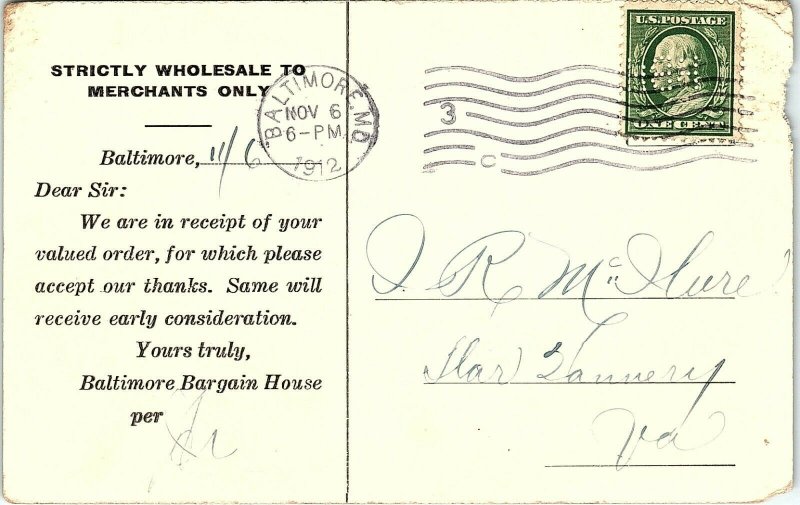 STRICTLY WHOLESALE TO
MERCHANTS ONLY
Baltimore, 11/6
Dear Sir:
We are in receipt of your
valued order, for which please
accept our thanks. Same will
receive early consideration.
Yours truly,
Baltimore Bargain House
per
BALTIMORE, MD
NOV 6
6-PM
1912
3
C
U.S. POSTAGE
ONE CENT
R Mc
Tannery
Va